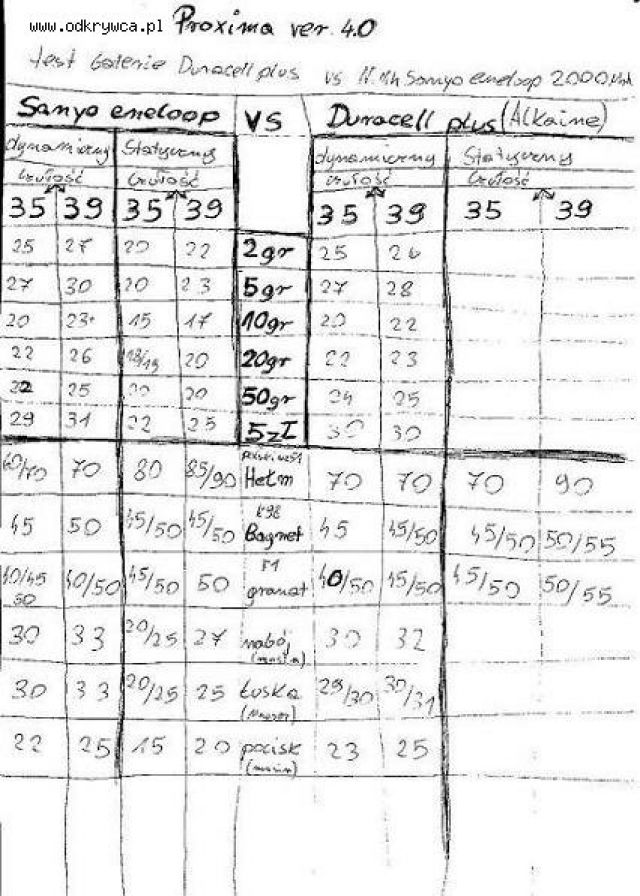 www.odkrywca.pl
Proxima ver. 4.0
test baterie Duracell plus vs Sanyo eneloop 2000
Sanyo eneloop VS Duracell plus (Alkaine)
dynamiczny Statyczny dynamiczny Statyczny
czułość czułość czułość czułość
35 39 35 39 35 39 35 39
25 27 20 22 2gr 25 26
27 30 20 23 5gr 27 28
20 23 15 17 10gr 20 22
22 26 18/19 20 20gr 22 23
22 25 20 20 50gr 24 25
29 31 22 25 5zł 30 30
60/70 70 80 85/90 Hełm 70 70 70 90
45 50 45/50 45/50 K98 Bagnet 45 45/50 45/50 50/55
40/45 50 40/50 45/50 50 F1 granat 40/50 45/50 45/50 50/55
30 33 20/25 27 nabój 30 32
30 33 20/25 25 Łuska (Mauser) 29/30 30/31
22 25 15 20 pocisk 23 25